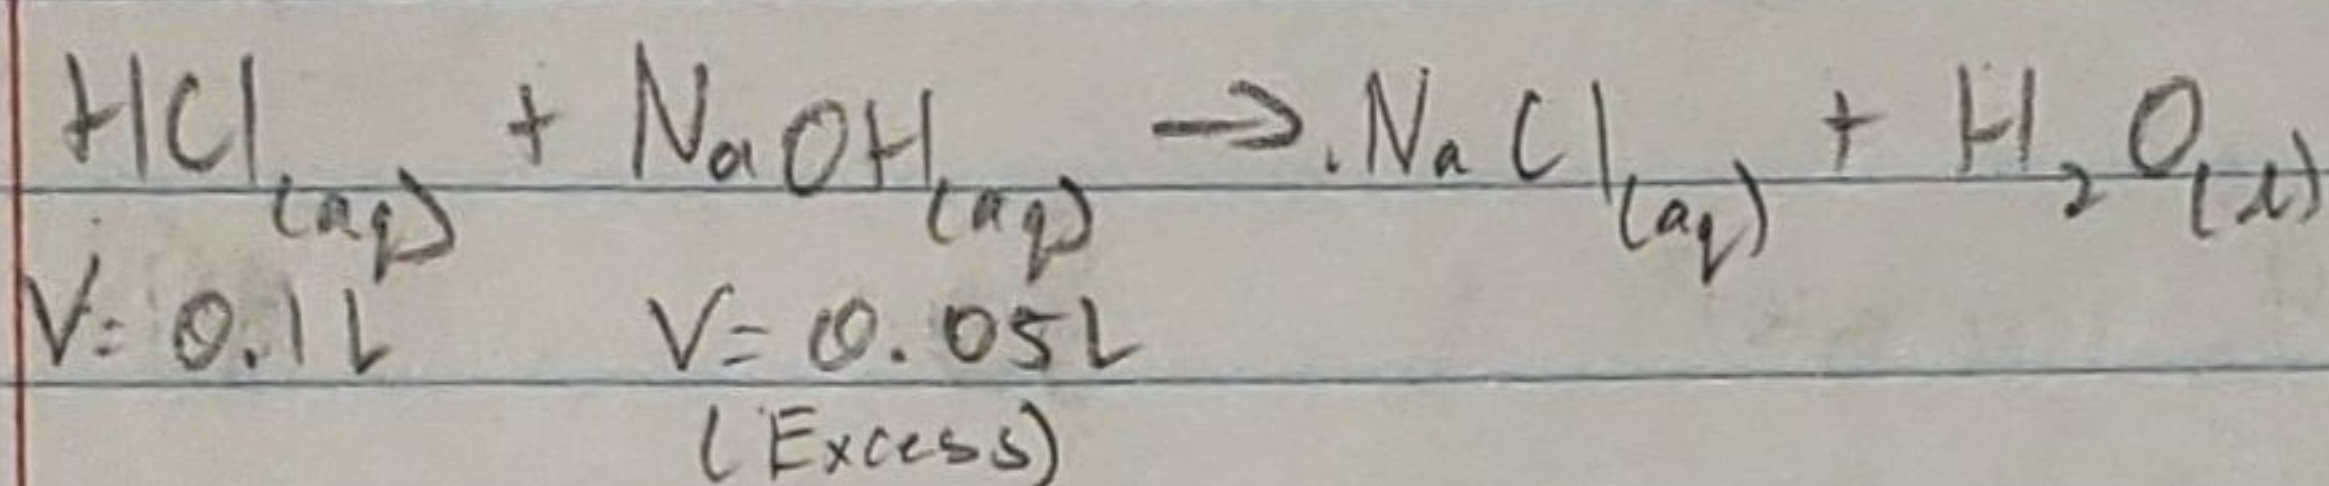 HCl(aq) + NaOH(aq) → NaCl(aq) + H₂O(l)
V= 0.1L V= 0.05L
(Excess)